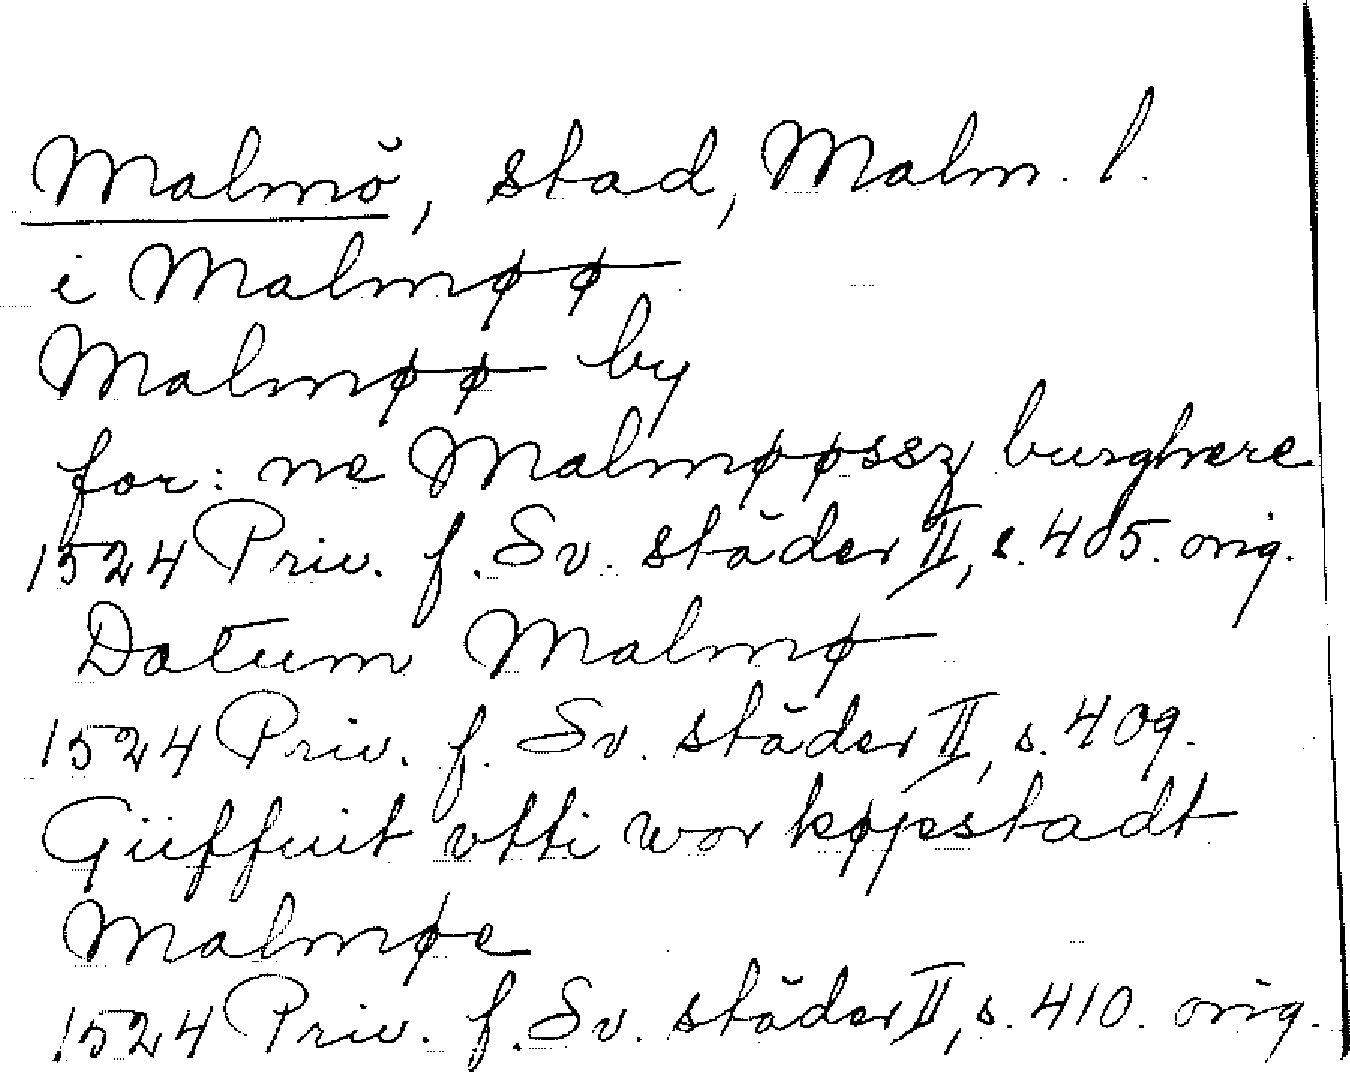 Malmö, stad, Malm. l.
i Malmøø
Malmøø by
for: ne Malmøøssz burghere
1524 Priv. f. Sv. städer II, s. 405. orig.
Datum Malmø
1524 Priv. f. Sv. städer II, s. 409.
Güffuit vtti wor køpstadt
Malmøe
1524 Priv. f. Sv. städer II, s. 410. orig.